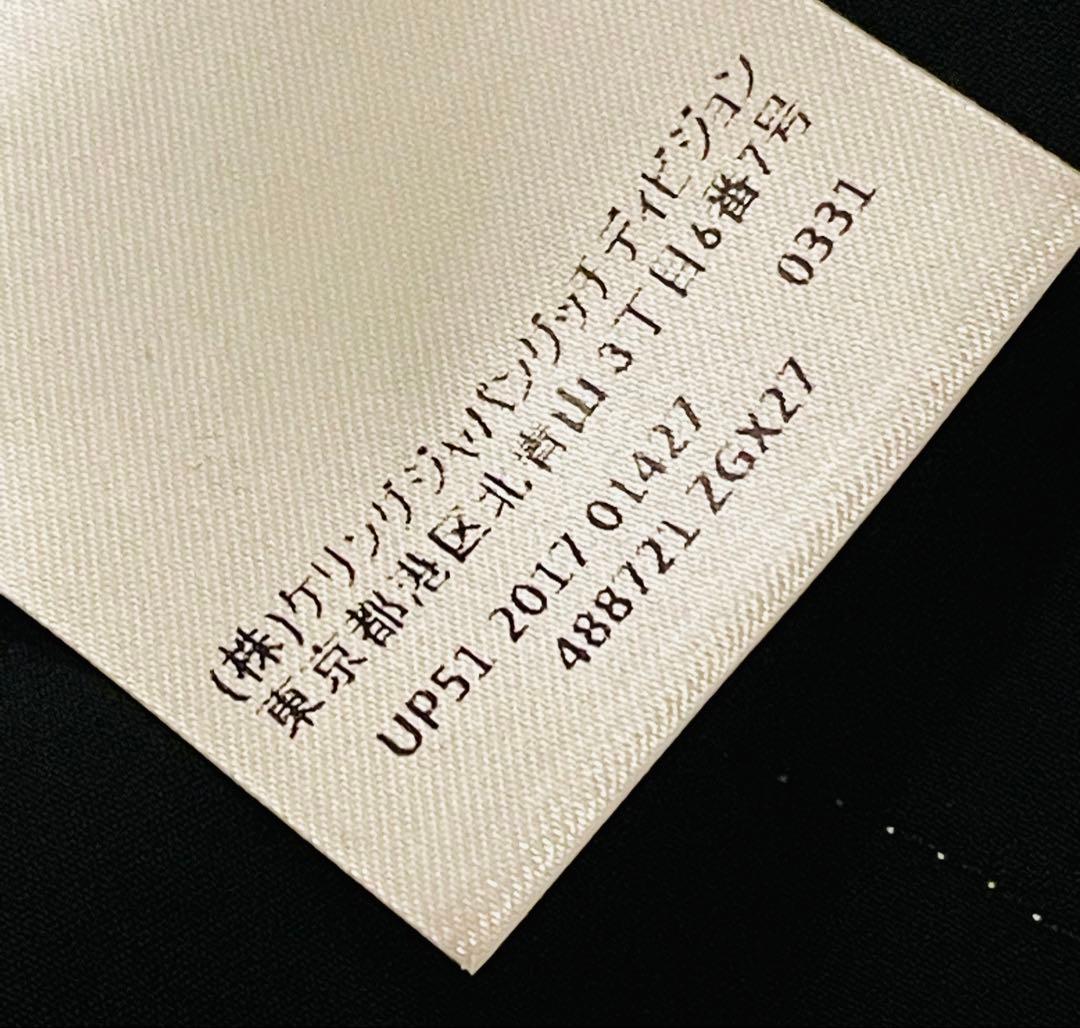 (株)ケリングジャパングッチ ディビジョン
東京都港区北青山3丁目6番7号
UP51 2017 01427 0331
488721 ZGX27